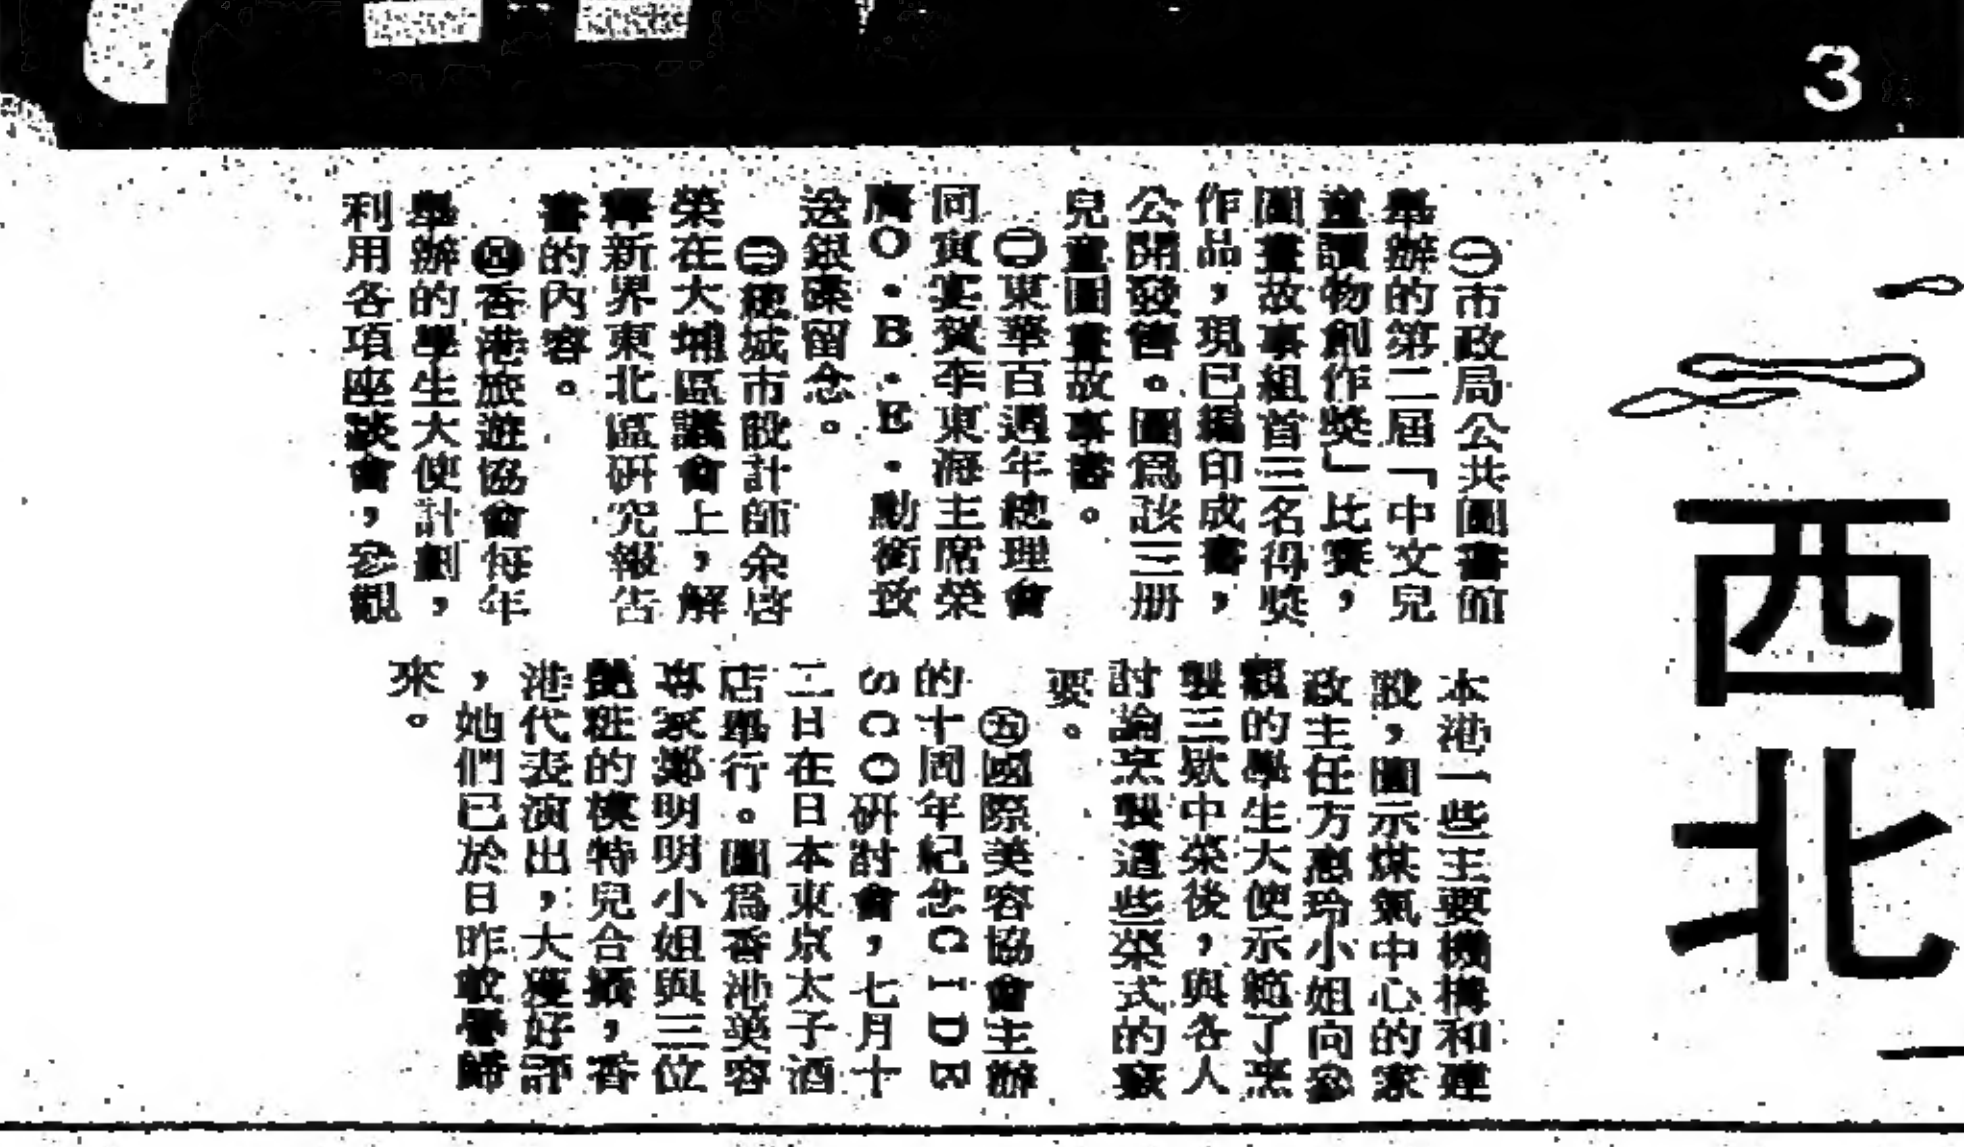 3
西北
㊀市政局公共圖書館
舉辦的第二屆「中文兒
童讀物創作獎」比賽，
圖畫故事組首三名得獎
作品，現已編印成書，
公開發售。圖爲該三册
兒童圖畫故事書。
㊁東華百週年總理會
同寅宴賀李東海主席榮
膺O．B．E．勳銜致
送銀碟留念。
㊂總城市設計師余啓
榮在大埔區議會上，解
釋新界東北區研究報告
書的內容。
㊃香港旅遊協會每年
舉辦的學生大使計劃，
利用各項座談會，參觀
本港一些主要機構和建
設，圖示煤氣中心的家
政主任方惠玲小姐向參
觀的學生大使示範了烹
製三款中菜後，與各人
討論烹製這些菜式的竅
要。
㊄國際美容協會主辦
的十周年紀念CIDE
SCO研討會，七月十
二日在日本東京太子酒
店舉行。圖爲香港美容
專家鄭明明小姐與三位
艷粧的模特兒合攝，香
港代表演出，大獲好評
，她們已於日昨載譽歸
來。